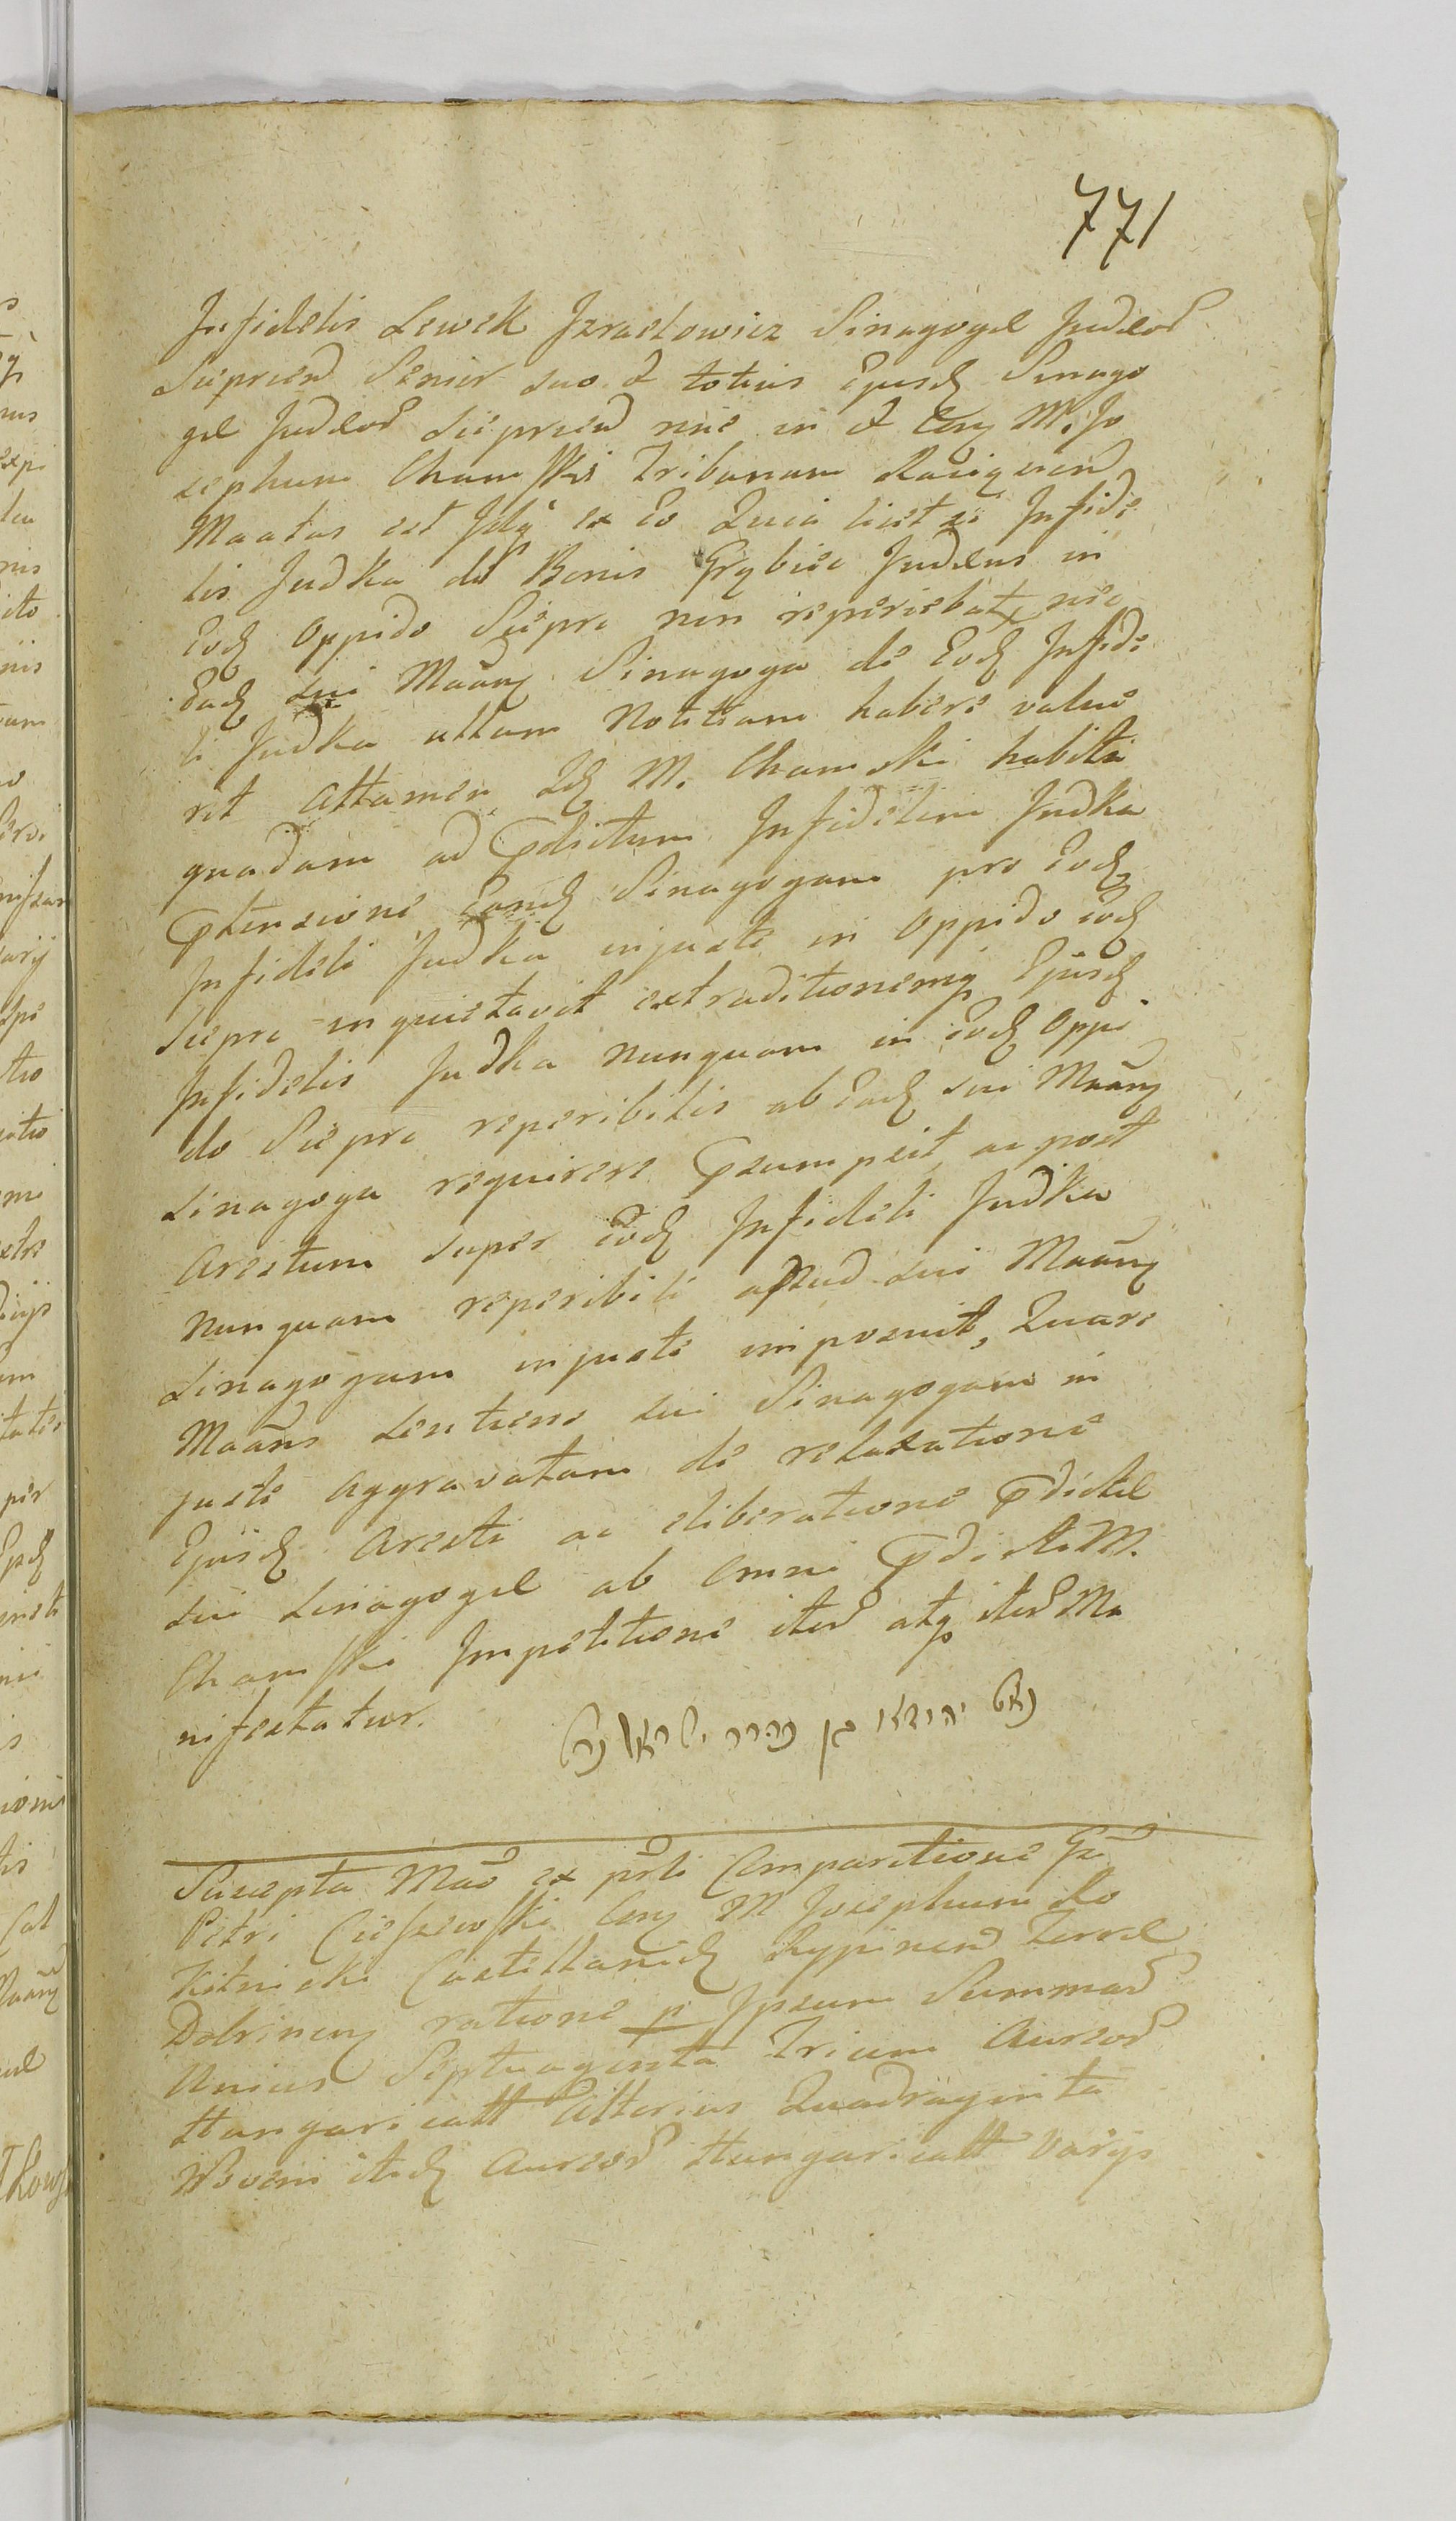 771
Infidelis Lewek Izraelowicz Sinagogae Judaeor
Sieprcen Senior suo & totius Ejusd Sinago
gae Judaeor Sieprcen nñe in & Con M. Jo
sephum Chamski Tribunum Raciążen
Maatus est Idq ex Eo Quia licet Infide
lis Judka de Bonis Grąbiec Judaeus in
Eod Oppido Sieprc non reperiebat, nec
Ead sui Maañ Sinagoga de Eod Infide
li Judka ullam Notitiam habere value
rit Attamen Id M. Chamski habita
quadam ad pdictum Infidelem Judka
ptensione Eand Sinagogam pro Eod
Infideli Judka injuste in Oppido Eod
Sieprc inquietavit extraditionemq Ejusd
Infidelis Judka nunquam in Eod Oppi
do Sieprc reperibilis ab Ead sui Maañ
Sinagoga requirere psumpsit, ac post
Arestum super Eod Infideli Judka
nunquam reperibili apud sui Maañ
Sinagogam injuste imposuit, Quare
Maañs sentiens sui Sinagogam in
juste aggravatam de relaxatione
Ejusd Aresti ac liberatione pdictae
sui Sinagogae ab omni pdicti M.
Chamski Impetitione iter atq iter Ma
nifestatur.
יהודא בן ישראל
Suscepta Mao ex pñti Comparitione Gñ
Petri Cieszewski Con M Josephum Ro
kitnicki Castellanid Rypinen Terrae
Dobrinen ratione p Ipsum Summar
Unius Septuaginta Trium Aureor
Hungaricall Alterius Quadraginta
Novem itid Aureor Hungaricall Varijs